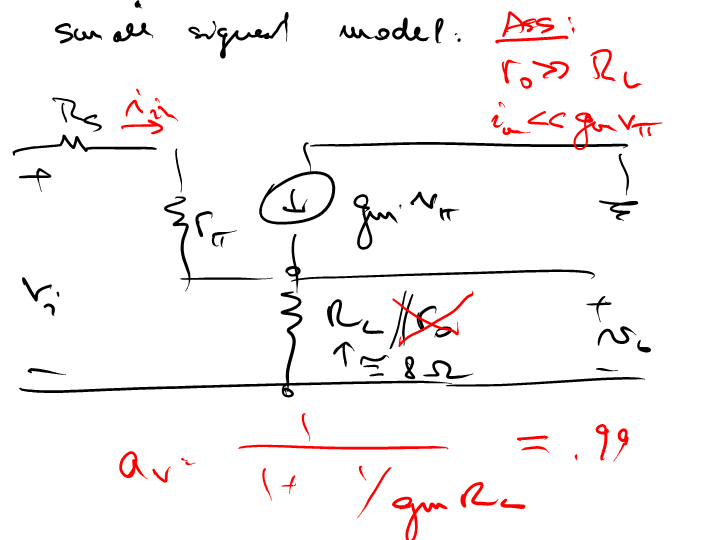 small signal model. Ass:
r₀ >> R_L
i_in << g_m v_π
R_S i_in
+
g_m · v_π
r_π
v_i
R_L // r₀
+
↑ ≅ 8 Ω
v_o
− −
a_v = 1 / (1 + 1/g_m R_L) = .99